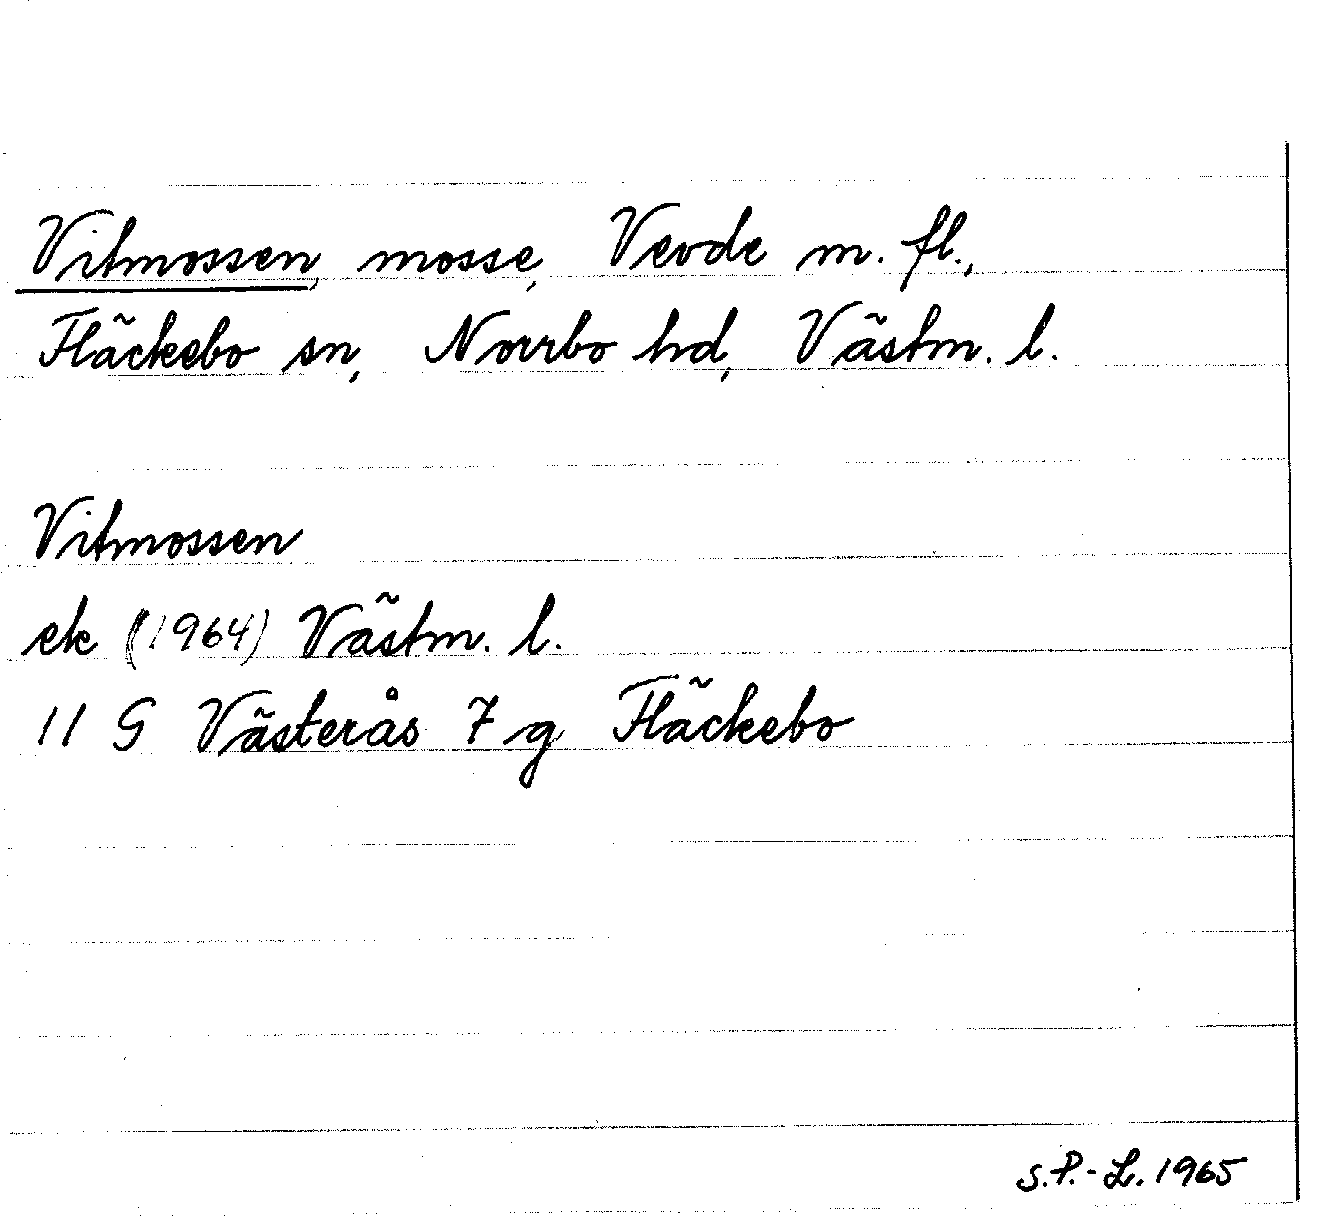 Vitmossen, mosse, Vevde m. fl.,
Fläckebo sn, Norrbo hd, Västm. l.
Vitmossen
ek (1964) Västm. l.
11 G Västerås 7 g Fläckebo
S.P.-L. 1965